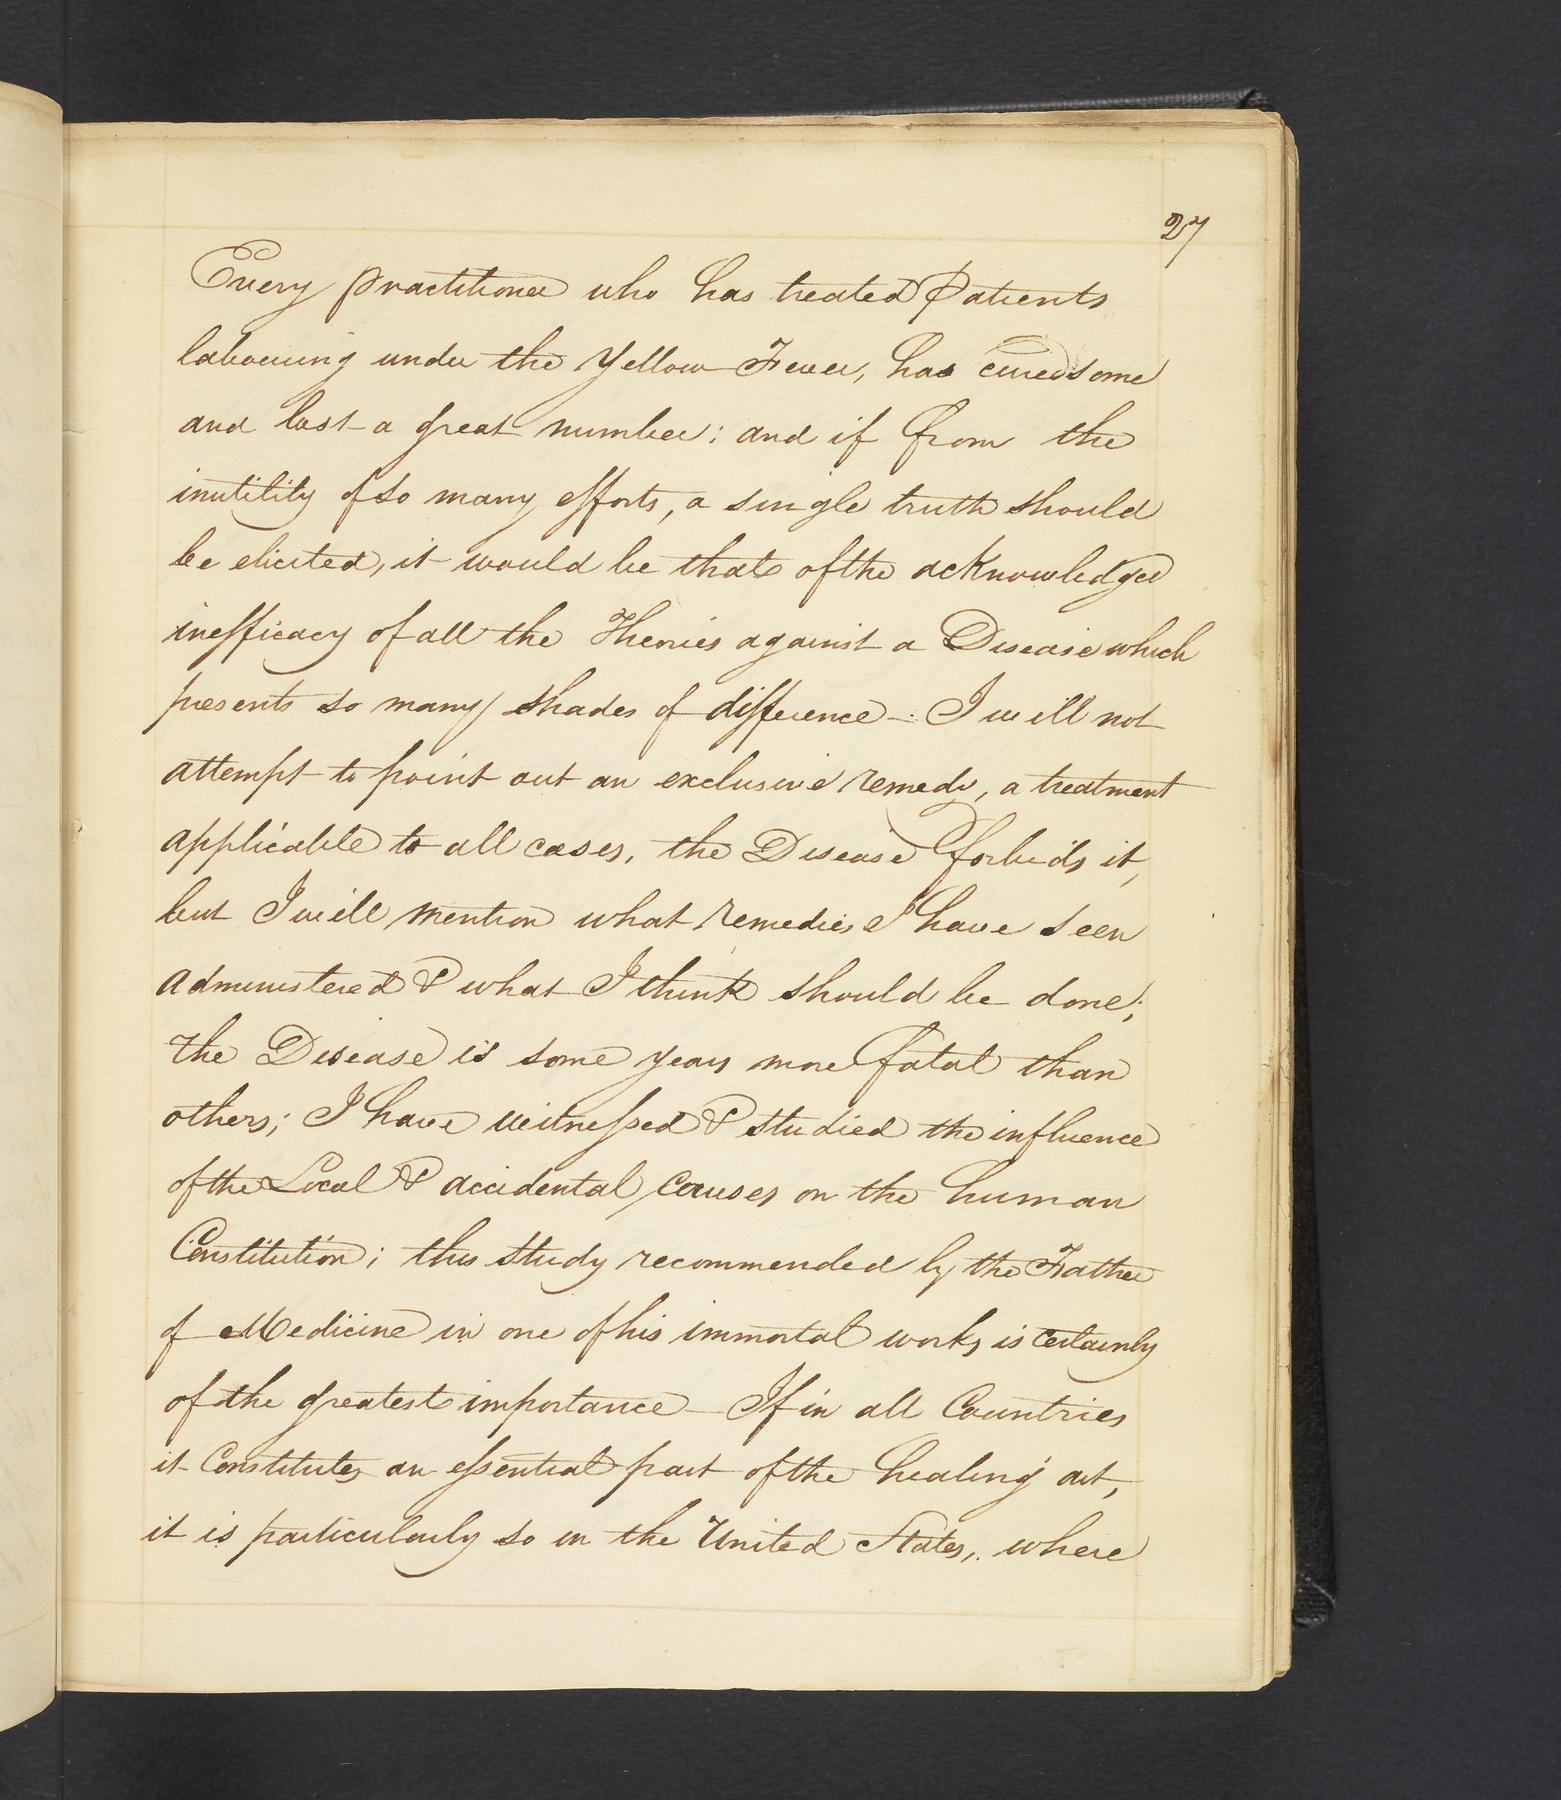 27
Every practitioner who has treated Patients
labouring under the Yellow Fever, has cured some
and lost a great number: and if from the
inutility of so many efforts, a single truth should
be elicited, it would be that of the acknowledged
inefficacy of all the Theories against a Disease which
presents so many shades of difference -. I will not
attempt to point out an exclusive remedy, a treatment
applicable to all cases, the Disease forbids it,
but I will mention what remedies I have seen
administered & what I think should be done;
the Disease is some years more fatal than
others; I have witnessed & studied the influence
of the Local & accidental causes on the human
Constitution; this study recommended by the Father
of Medicine in one of his immortal works is certainly
of the greatest importance - If in all Countries
it Constitutes an essential part of the healing art,
it is particularly so in the United States, where